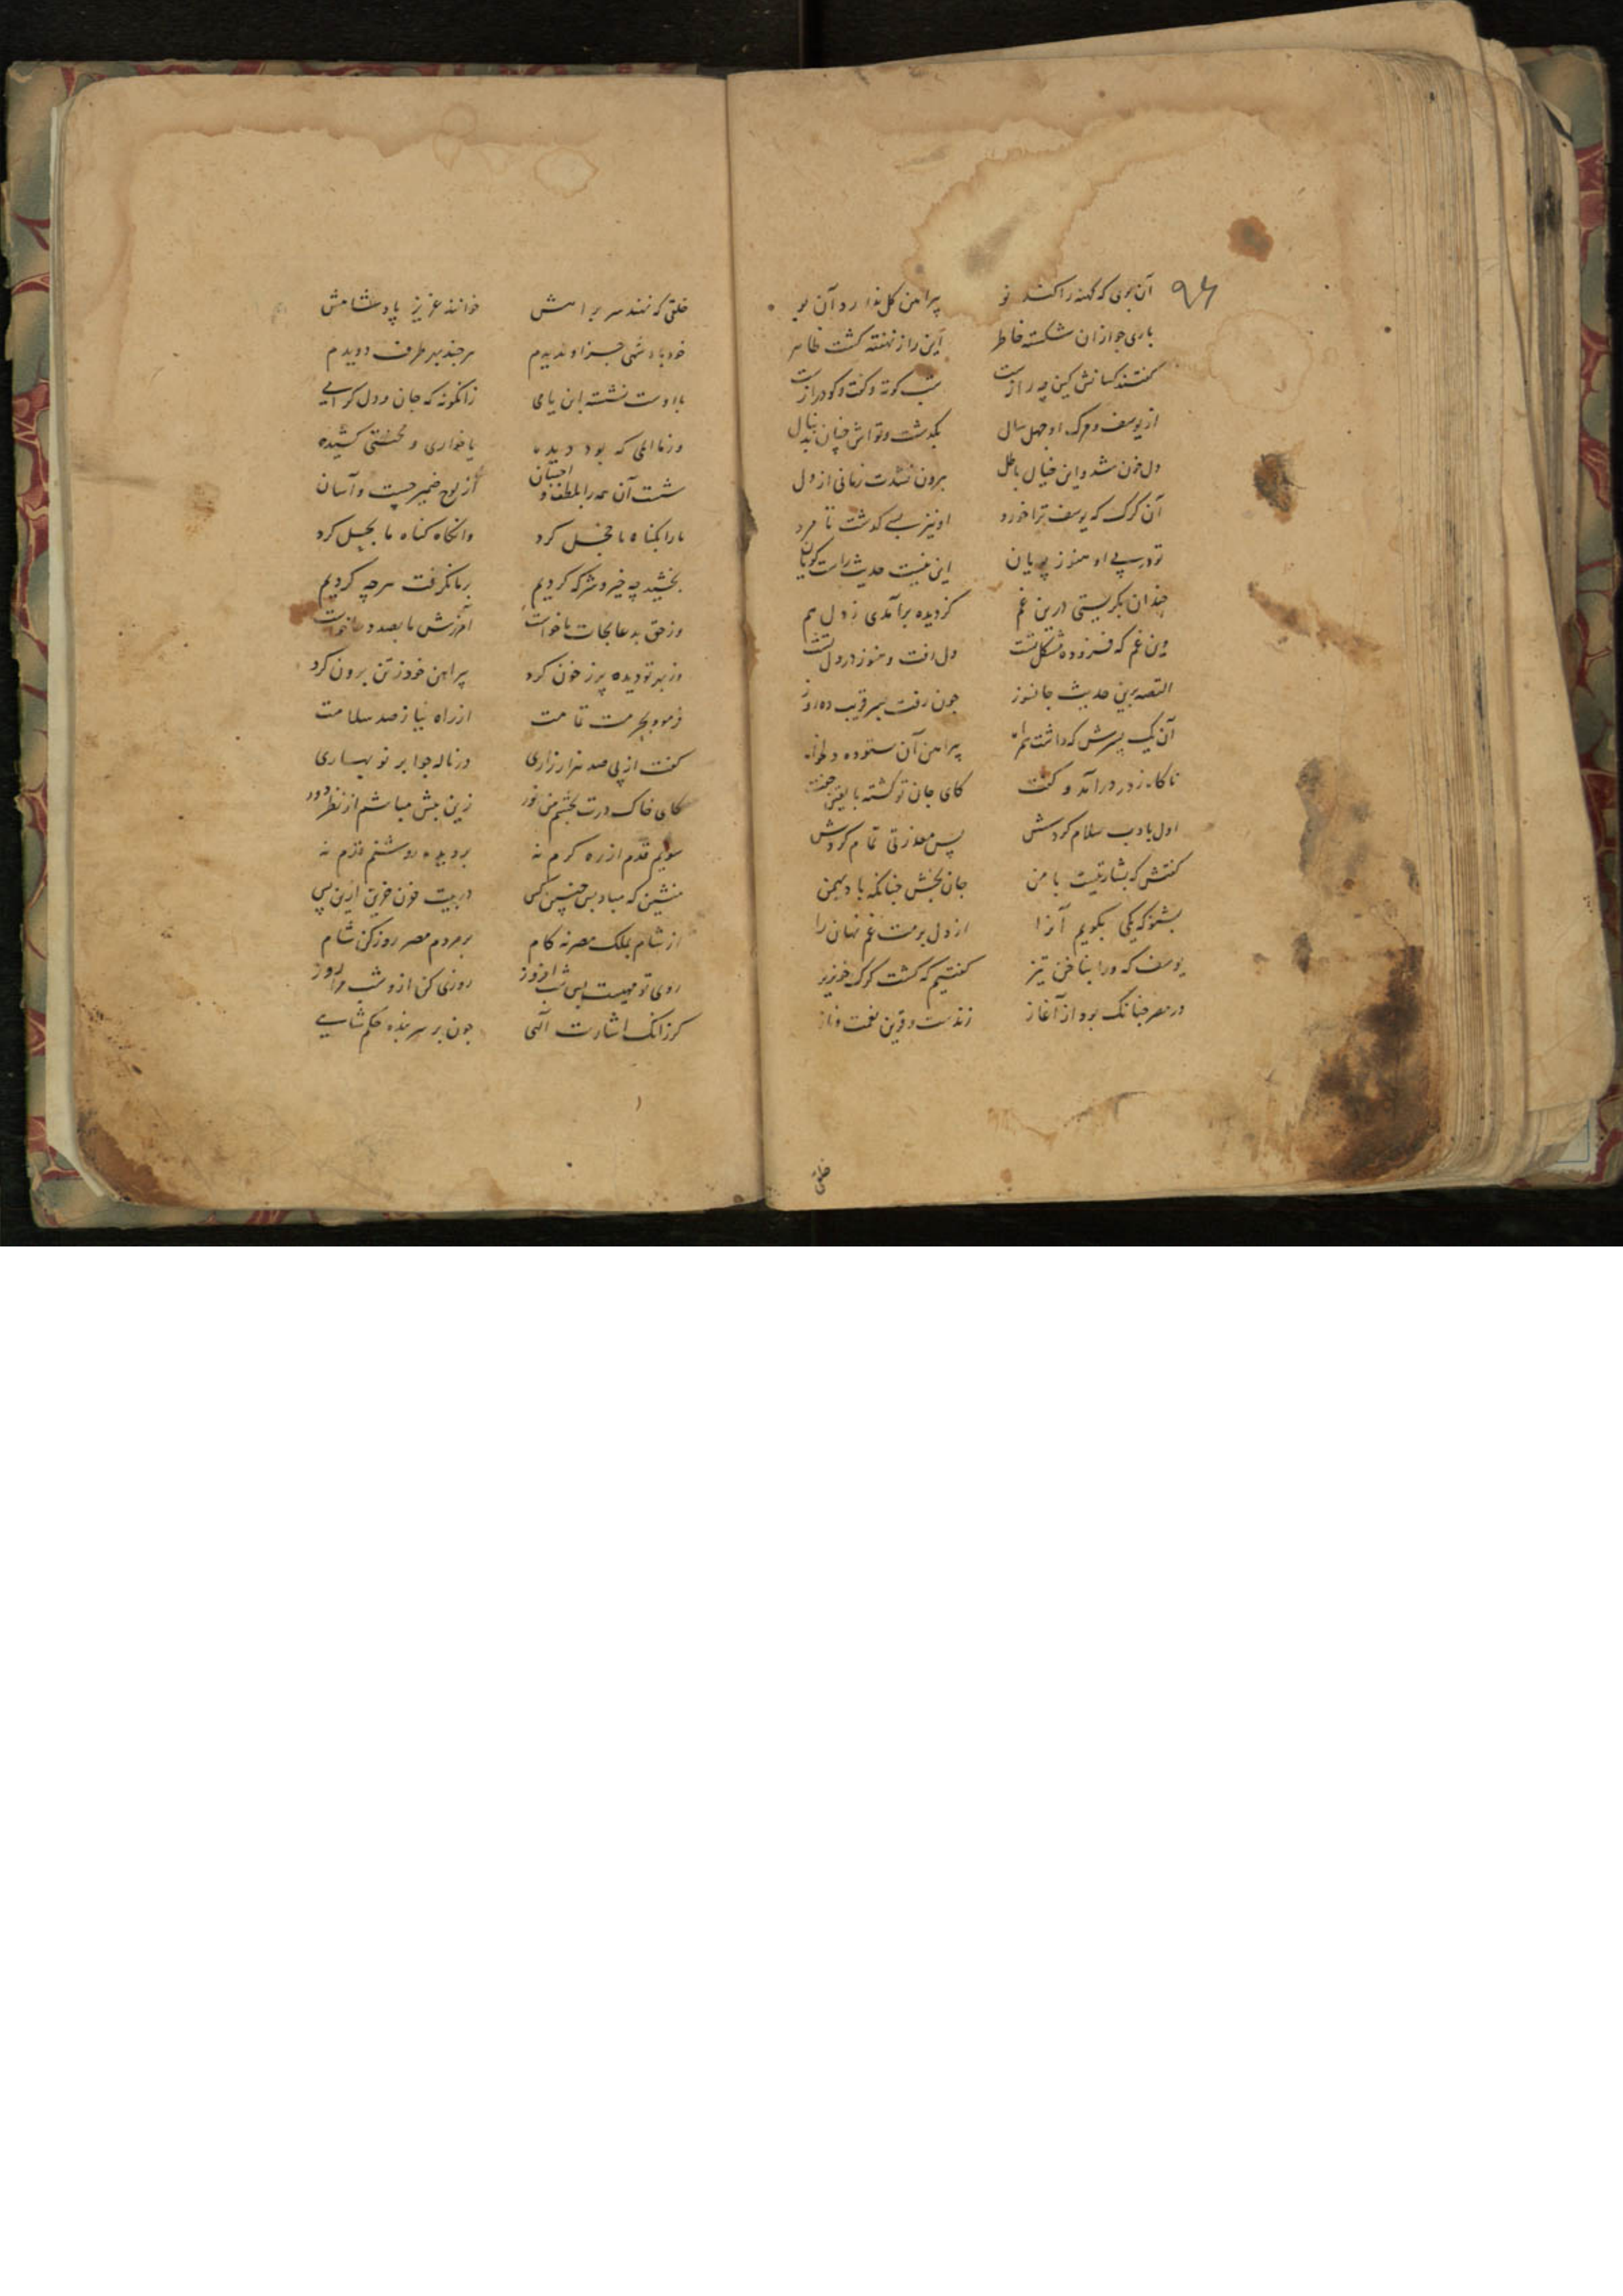 آن بوی که کهنه را کند نو پیراهن کل ندارد آن بو
باری چو از آن شکسته خاطر این راز نهفته کشت ظاهر
کفتند کسانش کین چه رازست شب کوته و کفت و کو درازست
از یوسف و مرک او چهل سال بکذشت و تواش چنان بدنبال
دل خون شد و این خیال باطل برون نشدت زمانی از دل
آن کرک که یوسف ترا خورد او نیز بسی کذشت تا مرد
تو در پی او هنوز پویان این نیست حدیث راست کویان
چندان بکریستی درین غم کز دیده برآمدی ز دل هم
وین غم که فزوده مشکل تست دل رفت و هنوز در دل تست
القصه برین حدیث جانسوز چون رفت بسر قریب ده روز
آن یک پسرش که داشت همراه پیراهن آن ستوده دلخواه
ناکاه ز در درآمد و کفت کای جان تو کشته با یقین جفت
اول بادب سلام کردش پس معذرتی تمام کردش
کفتش که بشارتیست با من جان بخش چنانکه باد بهمن
بشنو که یکی بکویم آنرا از دل برمت غم نهان را
یوسف که ورا بناخن تیز کفتیم که کشت کرک خونریز
در مصر چنانک بود از آغاز زندست و قرین نعمت و ناز
خلقی
خلقی که نهند سر براهش خوانند عزیز پادشاهش
خود پادشهی جز او ندیدم هر چند بهر طرف دویدم
با اوست نشسته ابن یامی زانکونه که جان و دل کرامی
وز ما المی که بود دیده یا خواری و محنتی کشیده
شست آن همه را بلطف و احسان از لوح ضمیر چست و آسان
ما را بکناه ما خجل کرد وانکاه کناه ما بحل کرد
بخشید چه خیر و شر که کردیم بر ما نکرفت هر چه کردیم
وز حق بدعا نجات ما خواست آمرزش ما بصد دعا خواست
وز بهر تو دیده پر ز خون کرد پیراهن خود ز تن برون کرد
فرمود بحرمت تمامت از راه نیاز صد سلامت
کفت از پی صد هزار زاری در ناله چو ابر نوبهاری
کای خاک درت بچشم من نور زین بیش مباشم از نظر دور
سویم قدم از ره کرم نه بر دیده روشنم قدم نه
منشین که مباد بس چنین کس در بیت حزن حزین ازین پس
از شام بملک مصر نه کام بر مردم مصر روز کن شام
روی تو مهیست بس شب افروز روزی کن از و شب مرا روز
کر زانک اشارت الهی چون بر سر بنده حکم شاهی